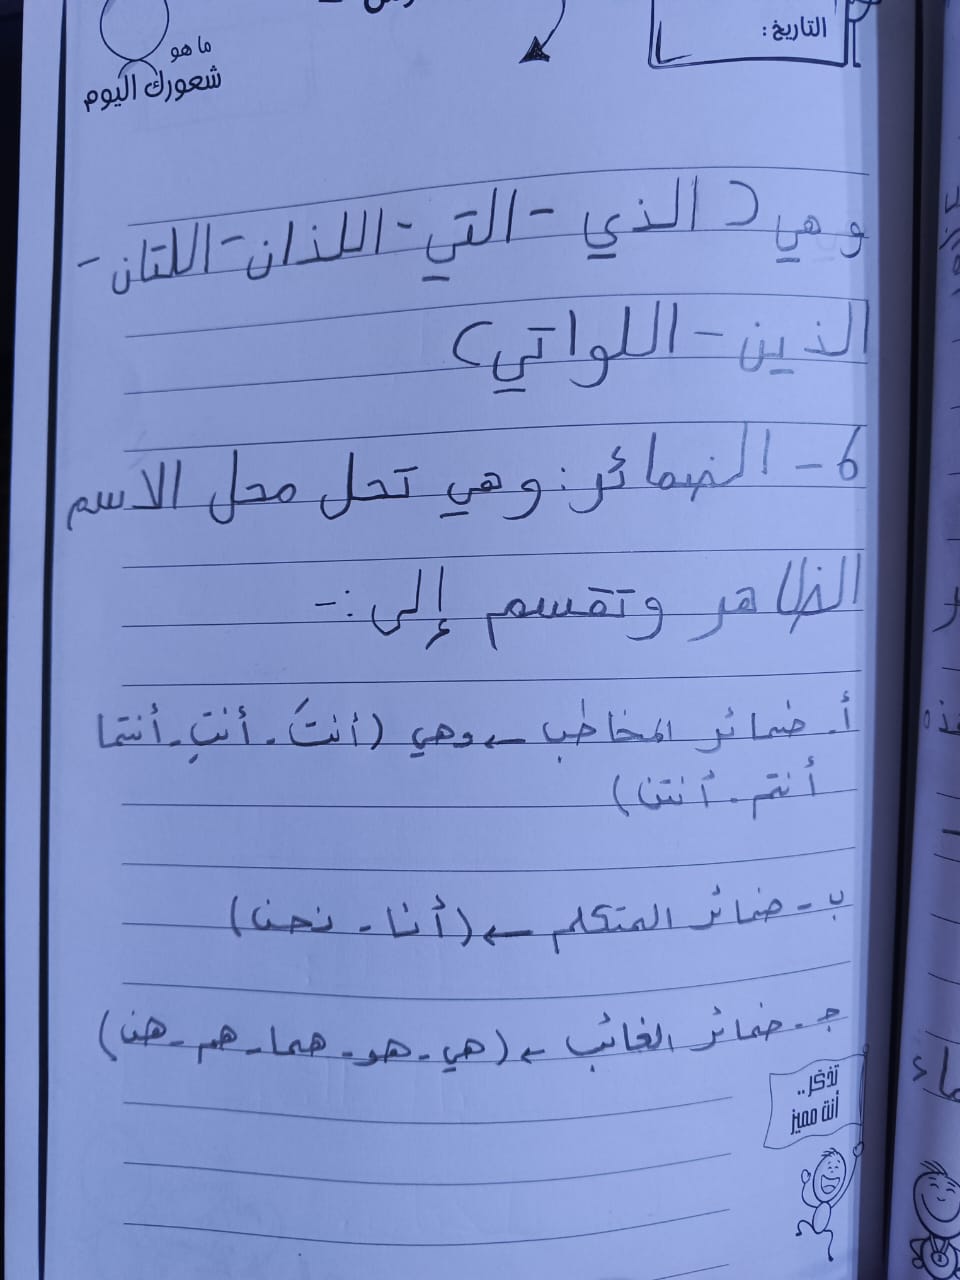 التاريخ:
ما هو
شعورك اليوم
وهي ( الذي - التي - اللذان - اللتان -
الذين - اللواتي )
6 - الضمائر: وهي تحل محل الاسم
الظاهر وتقسم إلى :-
أ. ضمائر المخاطب ← وهي (أنتَ. أنتِ. أنتما
أنتم. أنتن)
ب - ضمائر المتكلم ← (أنا - نحن)
جـ - ضمائر الغائب ← (هي - هو - هما - هم - هن)
تذكر..
أنت مميز